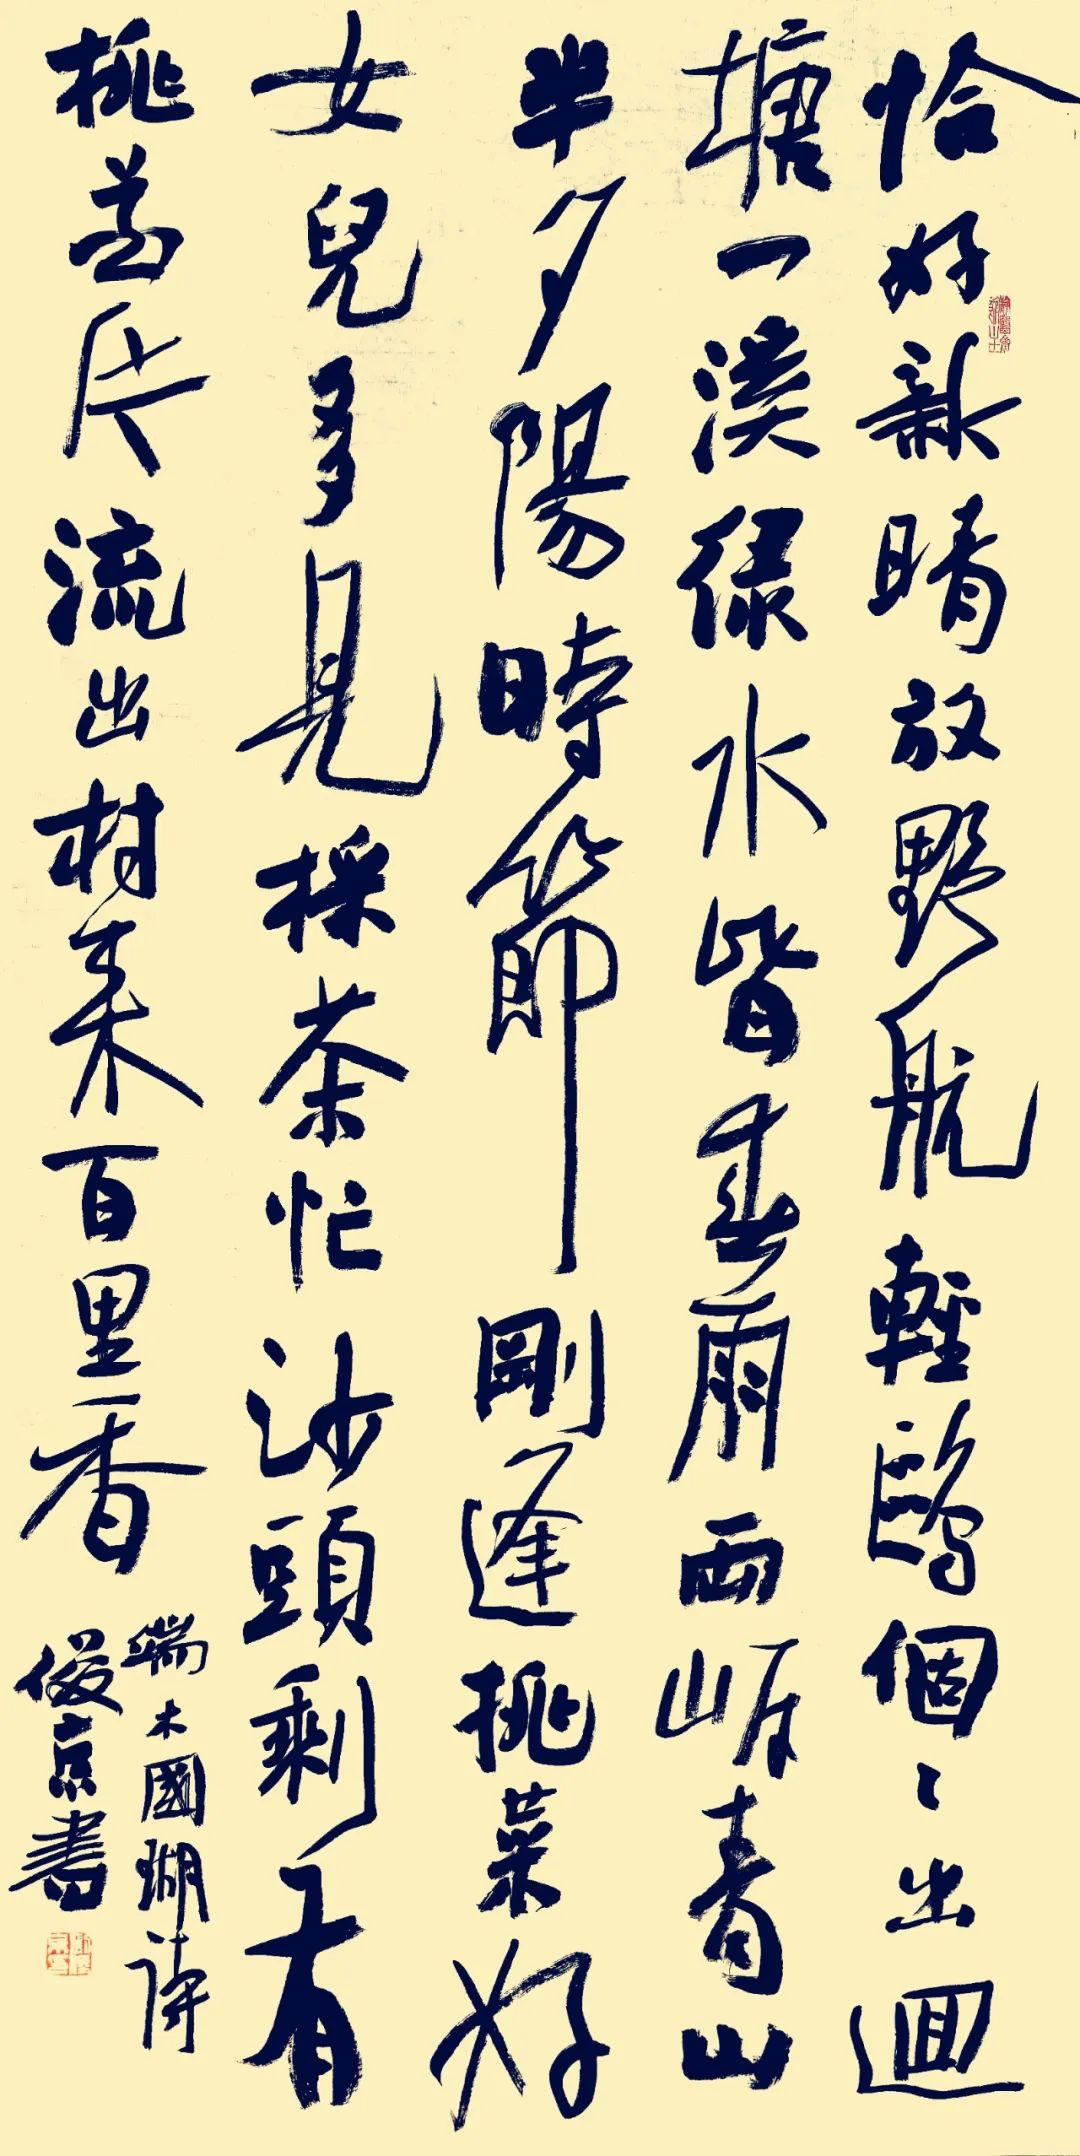 恰好新晴放野航輕鷗個〻出迴
塘一溪綠水皆春雨兩岸青山
半夕陽時節剛逢挑菜好
女兒多見採茶忙沙頭剩有
桃花片流出村來百里香
端木國瑚詩
俊京書